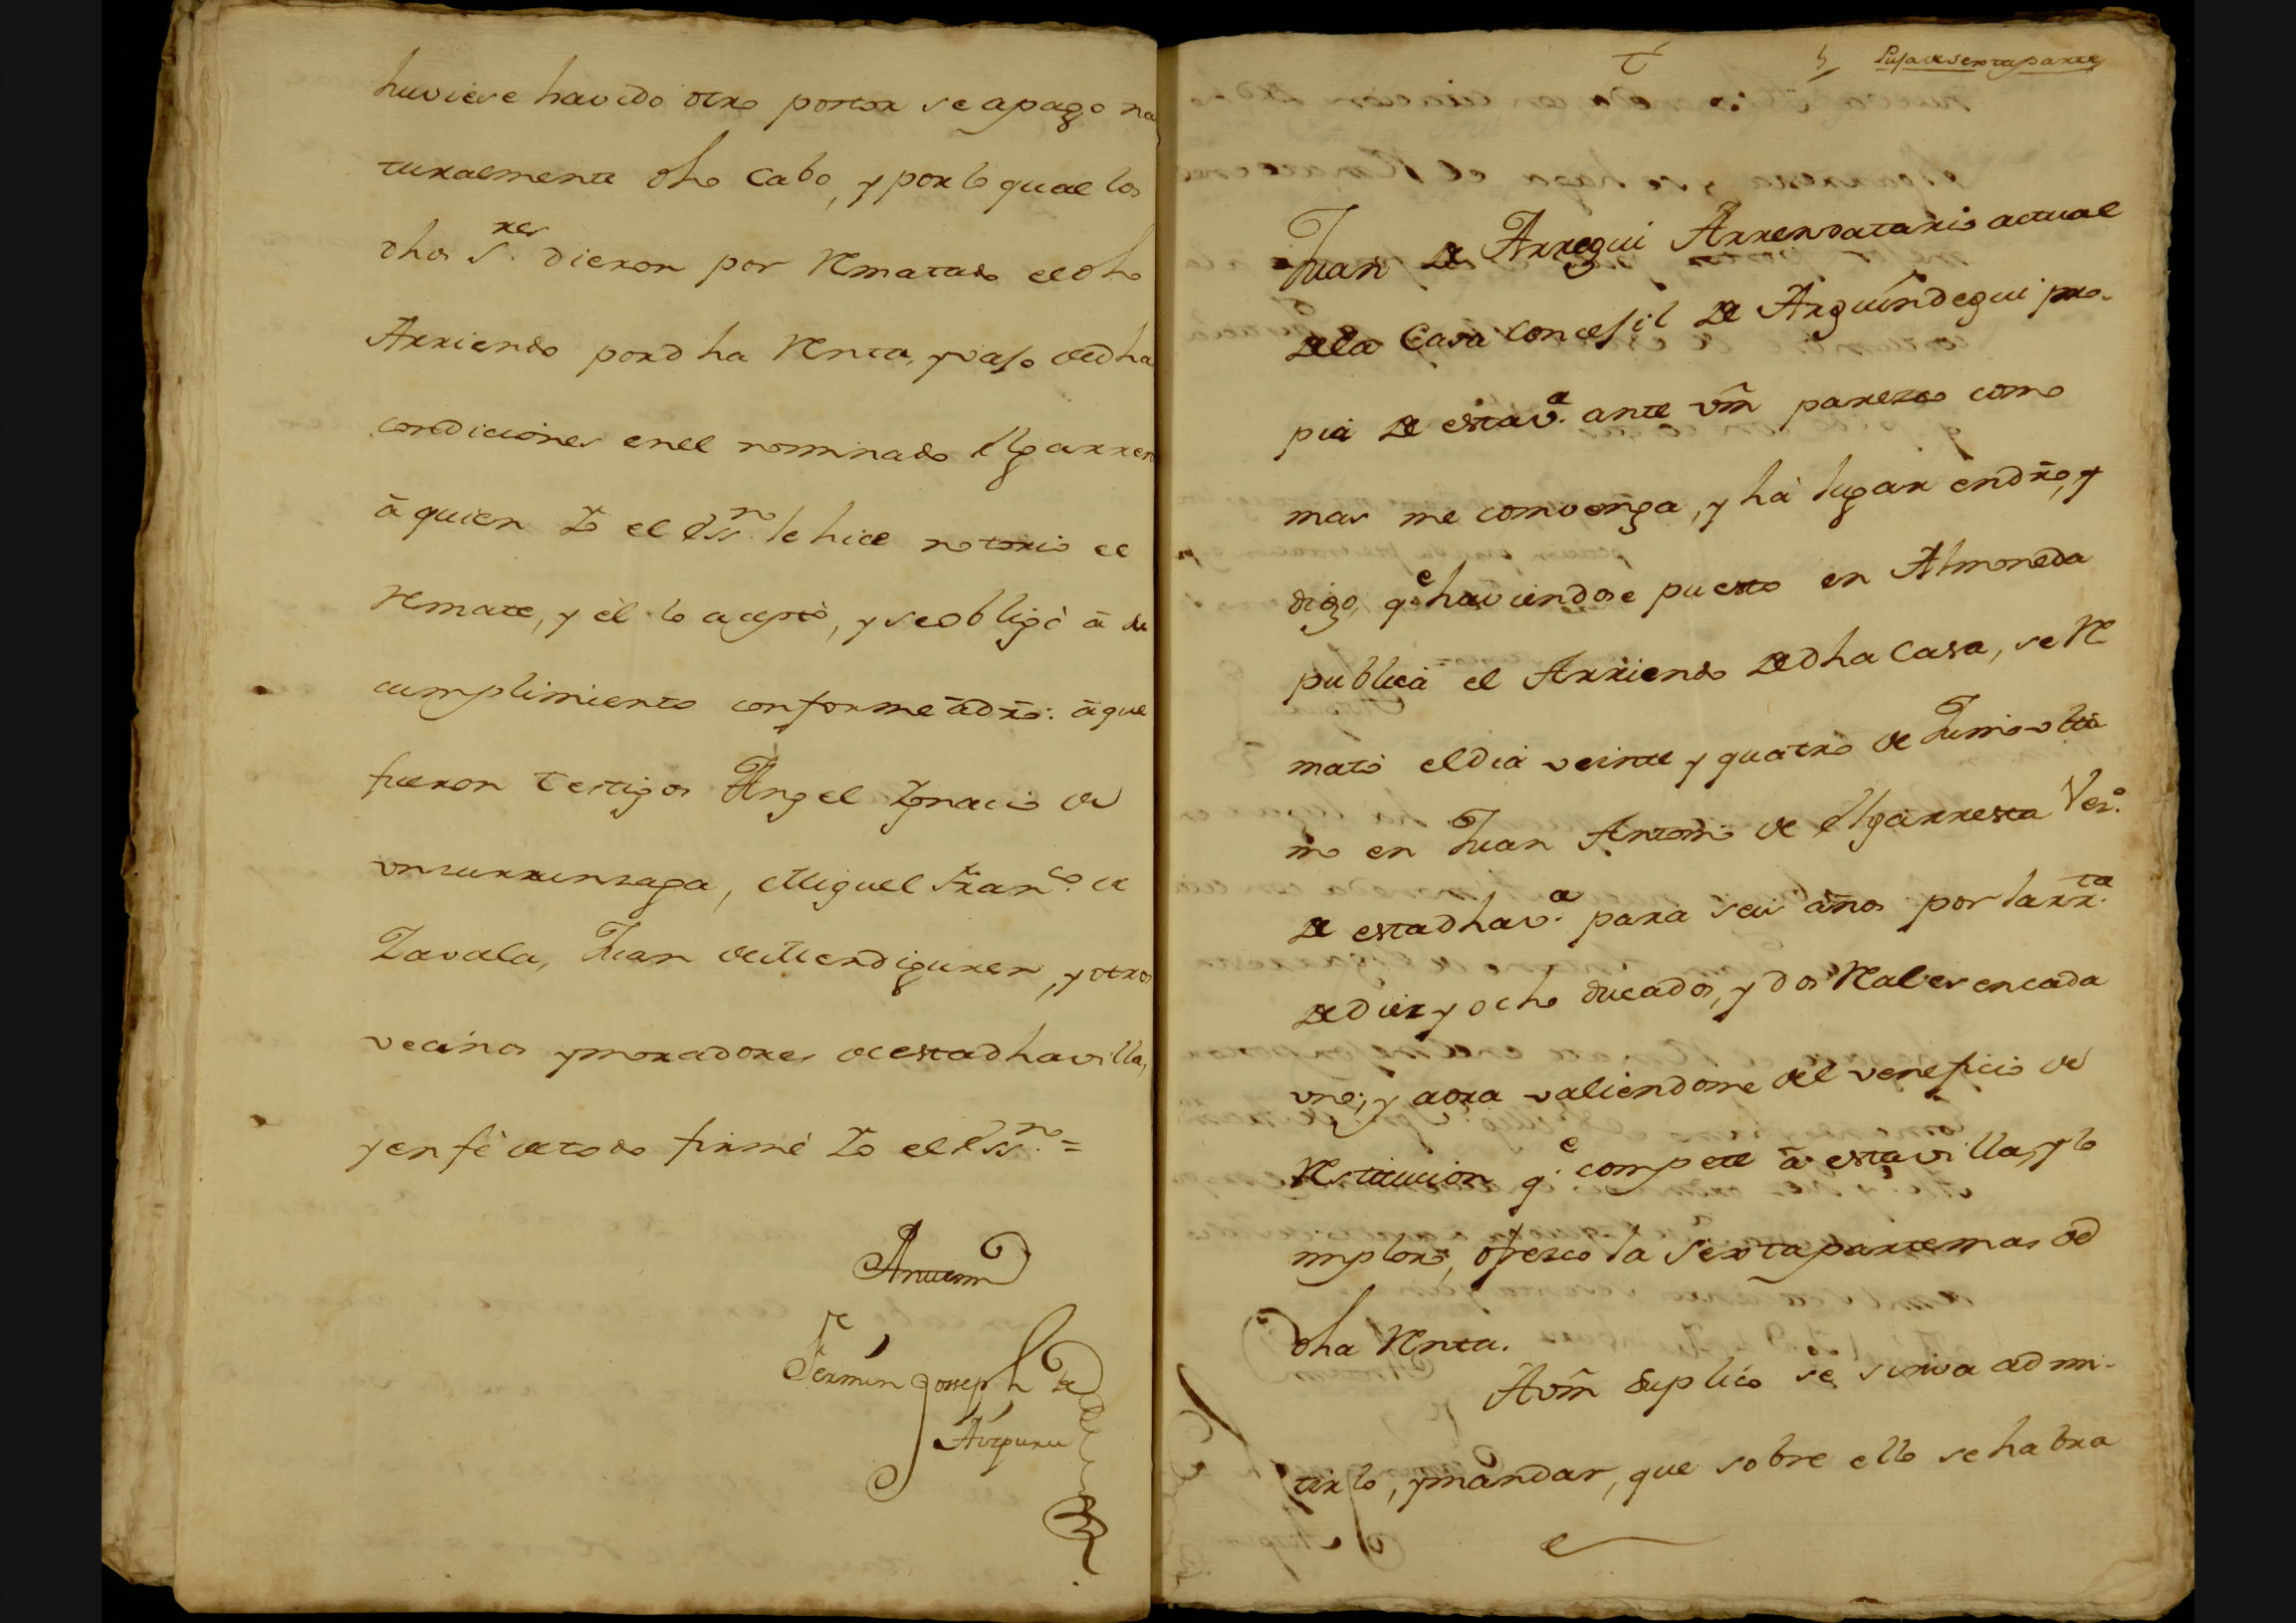 huviese havido otro postor se apagó na
turalmente dho Cabo, y por lo qual los
dhos S.res dieron por Rematado el dho
Arriendo por dha Renta, y vajo de dhas
condiciones en el nominado Elgarres
à quien Yo el Ess.no le hice notorio el
Remate, y èl lo aceptò, y se obligò à su
cumplimiento conforme à dro: à que
fueron testigos Angel Ygnacio de
Unzurrunzaga, Miguel Fran.co de
Zavala, Juan de Mendiguren, y otros
vecinos y moradores de esta dha villa,
y en fè de todo firmè Yo el Ess.no =
Antemi
Fermin Joseph de
Aizpuru
5
Puja de sexta parte
Juan de Arregui Arrendatario actual
de la Casa concejil de Arguindegui pro-
pia de esta v.a ante vm parezco como
mas me convenga, y hà lugar en dro, y
digo, q.e haviendose puesto en Almoneda
publica el Arriendo de dha Casa, se Re
matò el dia veinte y quatro de Junio ulti
mo en Juan Antonio de Elgarresta Vez.o
de esta dha v.a para seis años por la rr.ta
de diez y ocho ducados, y dos Reales en cada
uno; y aora valiendome del veneficio de
Restitucion q.e compete à esta villa, y lo
imploro, ofrezco la sexta parte mas de
dha Renta.
A vm suplico se sirva admi-
tirlo, y mandar, que sobre ello se habra